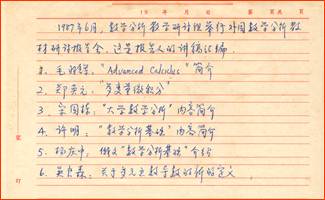 19 年 月 日 第 页 共 页
1987年6月,数学分析教学研讨班举行外国数学分析教
材研讨报告会,这是报告人的讲稿汇编
1. "Advanced Calculus" 简介
2. 郑英元:"多变量微积分"
3. 宋国栋:"大学数学分析"内容简介
4. 许明:"数学分析基础"内容简介
5. 中:俄文"数学分析基础"介绍
6. 关于多元函数导数的新的定义